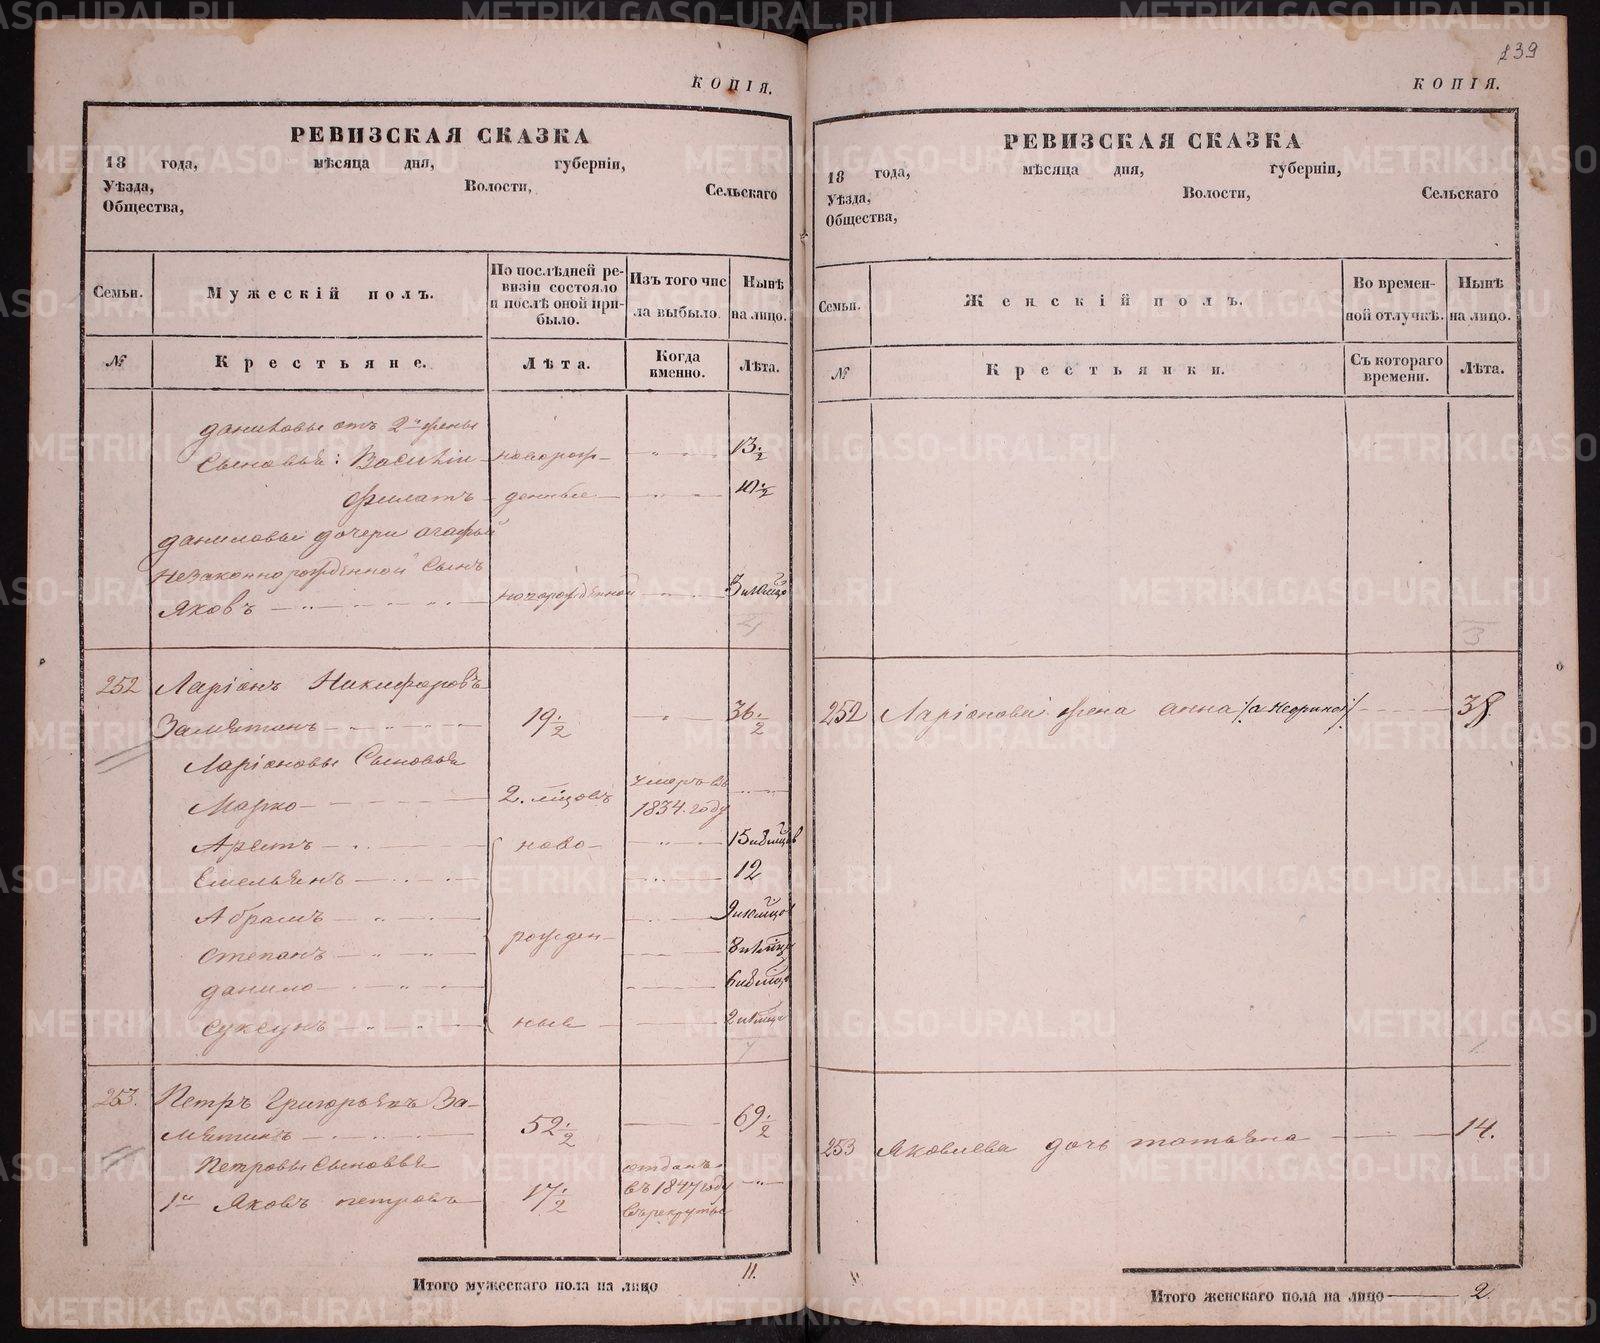 139
КОПІЯ.
РЕВИЗСКАЯ СКАЗКА
18 года, мѣсяца дня, губерніи,
Уѣзда, Волости, Сельскаго
Общества,
Семьи. Мужескій полъ. По послѣдней ревизіи состояло и послѣ оной прибыло. Изъ того числа выбыло. Нынѣ на лицо.
№ Крестьяне. Лѣта. Когда именно. Лѣта.
даниловы отъ 2й жены
Сыновья: Василіи новорож- 13 1/2
Филатъ денные 10 1/2
даниловы дочери агафьи
незаконнорожденной Сынъ
Яковъ новорожденной
252 Ларіонъ Никифоровъ
Замятинъ 19 1/2 36 1/2
Ларіоновы Сыновья
Марко 2. мѣсяцовъ умеръ въ 1834. году
Арепъ ново-
Емельянъ 12
Абрамъ
Степанъ рожден-
данило
ные
253. Петръ Григорьевъ За-
мятинъ 52 1/2 69 1/2
Петровы Сыновья
1й Яковъ петровъ 17 1/2 отданъ въ 1847 году въ рекруты
Итого мужескаго пола на лицо 11.
КОПІЯ.
РЕВИЗСКАЯ СКАЗКА
18 года, мѣсяца дня, губерніи,
Уѣзда, Волости, Сельскаго
Общества,
Семьи. Женскій полъ. Во временной отлучкѣ. Нынѣ на лицо.
№ Крестьянки. Съ котораго времени. Лѣта.
3
252 Ларіонова жена анна 38
253 Яковлева дочь татьяна 14.
Итого женскаго пола на лицо 2.
METRIKI.GASO-URAL.RU